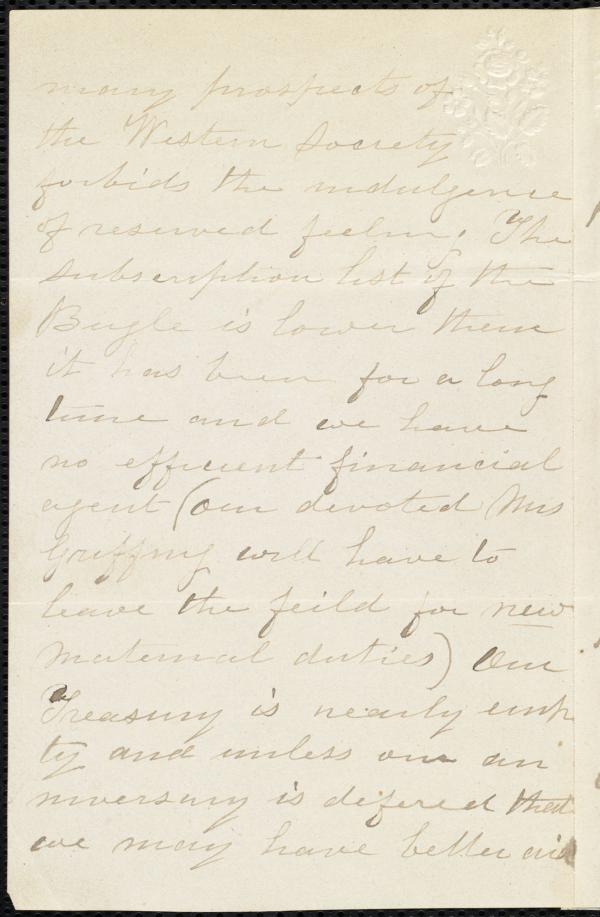 many prospects of
the Western Society
forbids the indulgence
of reserved feeling. The
subscription list of the
Bugle is lower then
it has been for a long
time and we have
no efficient financial
agent (our devoted Mrs
Griffing will have to
leave the feild for new
maternal duties) Our
Treasury is nearly emp
ty and unless our an
niversary is difered that
we may have better aid